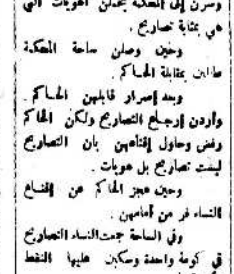 وسرن إلى المحكمة يحملن الهويات التي
هي بمثابة تصاريح .
وحين وصلن ساحة المحكمة
طالبن بمقابلة الحاكم .
وبعد إصرار قابلهن الحاكم .
وأردن إرجاع التصاريح ولكن الحاكم
رفض وحاول إقناعهن بان التصاريح
ليست تصاريح بل هويات .
وحين عجز الحاكم عن إقناع
النساء فر من أمامهن .
وفي الساحة جمعت النساء التصاريح
في كومة واحدة وسكبن عليها النفط